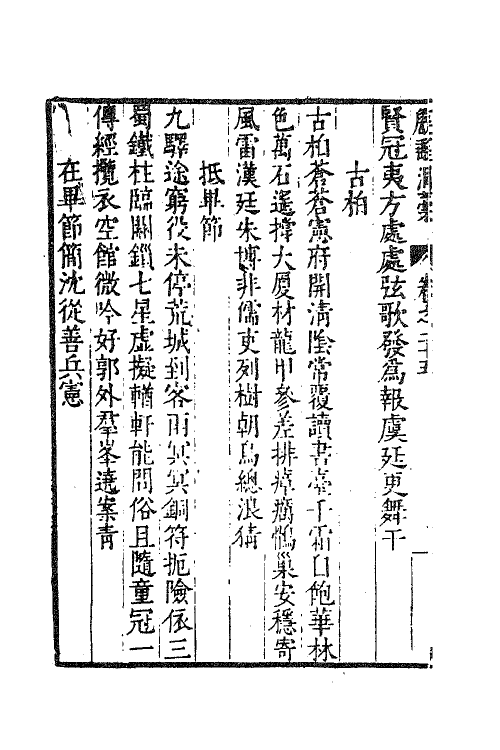 賢冠夷方處處弦歌發爲報虞廷更舞干
古柏
古柏蒼蒼憲府開清陰常覆讀書臺千霜白飽華林
色萬石遙撑大厦材龍甲參差排瘴癘鶴巢安穩寄
風雷漢廷朱博非儒吏列樹朝烏總浪猜
抵畢節
九驛途窮從未停荒城到客雨冥冥銅符扼險依三
蜀鐵柱臨關鎖七星虛擬輶軒能問俗且隨童冠一
傳經攬衣空館微吟好郭外羣峯遶案青
在畢節簡沈從善兵憲
卷之二十五